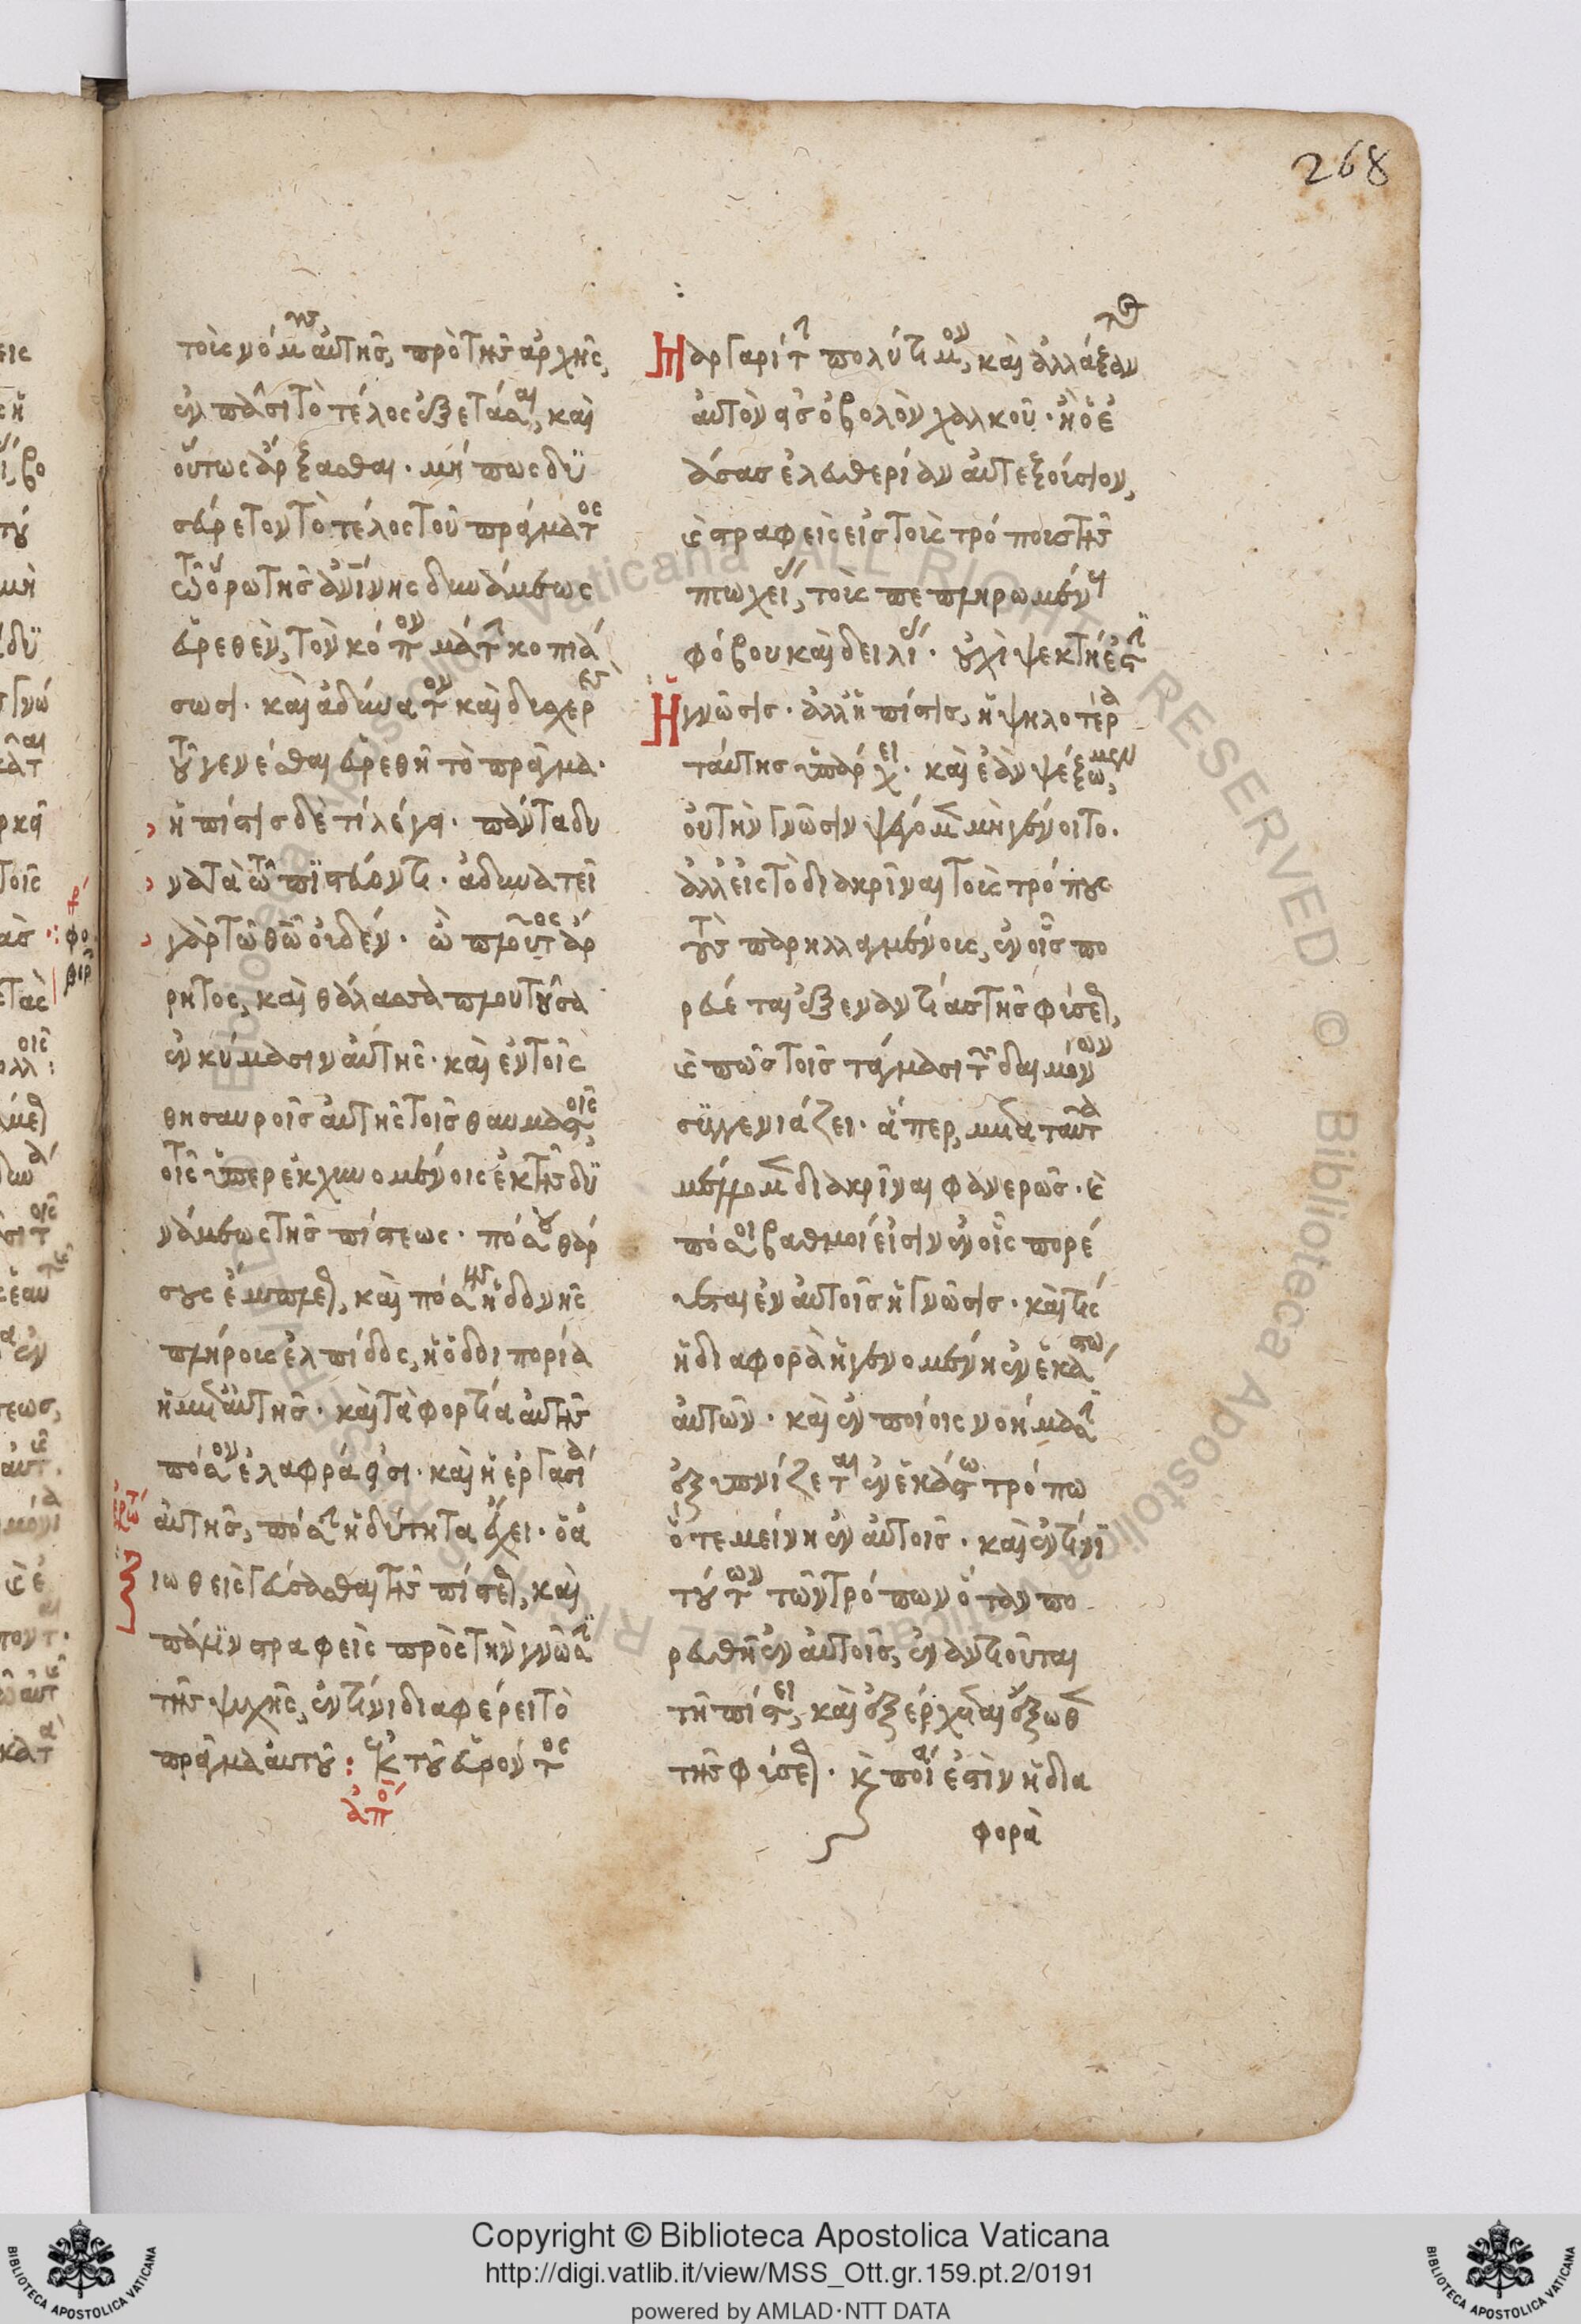 268
τοῖς νόμοις αὐτῆς, πρὸ τῆς ἀρχῆς,
ἐν πᾶσι τὸ τέλος ἐξετάσαι, καὶ
οὕτως ἄρξασθαι· μή πως δυ
σεύρετον τὸ τέλος τοῦ πράγματος
τῷ ὅρῳ τῆς ἀν̈ίνης δυνάμεως
εὑρεθὲν, τὸν κόπον μάτην κοπιά
σωσι· καὶ ἀδύνατον καὶ δυσχερὲς
τοῦ γενέσθαι εὑρεθῇ τὸ πρᾶγμα·
ἡ πίστις δὲ τί λέγει· πάντα δυ
νατὰ τῷ πιστεύοντι· ἀδυνατεῖ
γὰρ τῷ θῶ οὐδέν· ὦ πλοῦτος ἄρ
ρητος, καὶ θάλασσα πλουτοῦσα
ἐν κύμασιν αὐτῆς· καὶ ἐν τοῖς
θησαυροῖς αὐτῆς τοῖς θαυμαστοῖς,
τοῖς ὑπερεκχυνομένοις ἐκ τῆς δυ
νάμεως τῆς πίστεως· πόσου θάρ
σους ἔμπλεως, καὶ πόσης ἡδονῆς
πλήρης ἐλπίδος, ἡ ὁδοιπορία
ἡ μετ' αὐτῆς· καὶ τὰ φορτία αὐτῆς
πόσον ἐλαφρά εἰσι· καὶ ἡ ἐργασία
αὐτῆς, πόσην ἡδύτητα ἔχει· ὁ ἀ
ξιωθεὶς γεύσασθαι τῆς πίστεως, καὶ
πάλιν στραφεὶς πρὸς τὴν γνῶσιν
τῆς ψυχῆς, ἐν τίνι διαφέρει τὸ
πρᾶγμα αὐτοῦ: Ἐκ τοῦ εὑρόντος
ἀπό
Μαργαρίτην πολύτιμον, καὶ ἀλλάξαν
αὐτὸν εἰς ὀβολὸν χαλκοῦ· ἢ ὁ ἐ
άσας ἐλευθερίαν αὐτεξούσιον,
καὶ στραφεὶς εἰς τοὺς τρόπους τῆς
πτωχείας, τοὺς πεπληρωμένους
φόβου καὶ δειλίας· οὐχὶ ψεκτή ἐστιν
Ἡ γνῶσις· ἀλλ' ἡ πίστις, ὑψηλοτέρα
ταύτης ὑπάρχει· καὶ ἐὰν ψέξωμεν,
οὐ τὴν γνῶσιν ψέγομεν μὴ γένοιτο·
ἀλλ' εἰς τὸ διακρῖναι τοὺς τρόπους
τοὺς παρηλλαγμένους, ἐν οἷς πο
ρεύεται ἐξ ἐναντίας τῆς φύσεως,
καὶ πῶς τοῖς τάγμασι τῶν δαιμόνων
συγγενιάζει· ἅπερ, μετὰ ταῦτα
μέλλομεν διακρῖναι φανερῶς· καὶ
πόσοι βαθμοί εἰσιν ἐν οἷς πορεύ
εται ἐν αὐτοῖς ἡ γνῶσις· καὶ τίς
ἡ διαφορὰ ἡ γενομένη ἐν ἑκάστῳ
αὐτῶν· καὶ ἐν ποίοις νοήμασιν
ἐξυπνίζεται ἐν ἑκάστῳ τρόπῳ
ὅτε μείνῃ ἐν αὐτοῖς· καὶ ἐν τίνι
τούτων τῶν τρόπων ὅταν πο
ρευθῇ ἐν αὐτοῖς, ἐναντιοῦται
τῇ πίστει, καὶ ἐξέρχεται ἔξωθεν
τῆς φύσεως· καὶ ποία ἐστὶν ἡ δια
φορὰ
Copyright © Biblioteca Apostolica Vaticana
http://digi.vatlib.it/view/MSS_Ott.gr.159.pt.2/0191
powered by AMLAD·NTT DATA